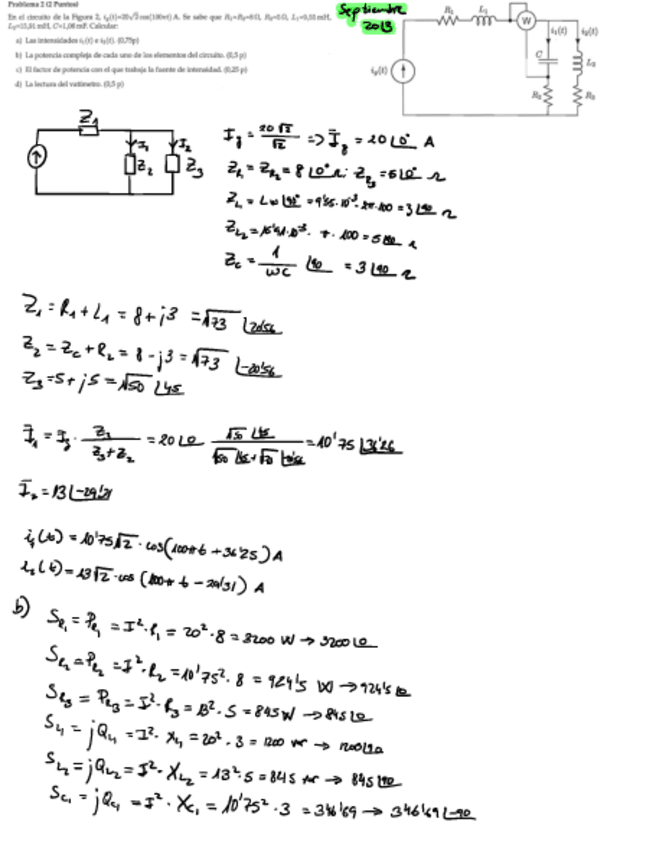 Problema 2 (2 Puntos)
En el circuito de la Figura 2, i_g(t)=20√2 cos(100πt) A. Se sabe que R₁=R₂=8Ω, R₃=5Ω, L₁=9,55 mH,
L₂=15,91 mH, C=1,06 mF. Calcular:
a) Las intensidades i₁(t) e i₂(t). (0,75p)
b) La potencia compleja de cada uno de los elementos del circuito. (0,5 p)
c) El factor de potencia con el que trabaja la fuente de intensidad. (0,25 p)
d) La lectura del vatímetro. (0,5 p)
Septiembre
2013
R₁ L₁ W
i₁(t) i₂(t)
i_g(t) C L₂
R₂ R₃
Z₁
I₁ I₂
Z₂ Z₃
I_g = 20√2/√2 => I_g = 20∠0° A
Z_R₁ = Z_R₂ = 8∠0° Ω; Z_R₃ = 5∠0° Ω
Z_L = Lω∠90° = 9'55·10⁻³· 2π·100 = 3∠90 Ω
Z_L₂ = 15'91·10⁻³· π·100 = 5∠90 Ω
Z_C = 1/ωC ∠90 = 3∠90 Ω
Z₁ = R₁ + L₁ = 8 + j3 = √73 ∠20'56
Z₂ = Z_C + R₂ = 8 - j3 = √73 ∠-20'56
Z₃ = 5 + j5 = √50 ∠45
I₁ = I_g · Z₃/(Z₃+Z₂) = 20∠0 · √50∠45/(√50∠45 + √73∠-20'56) = 10'75∠36'26
I₂ = 13∠-29'31
i₁(t) = 10'75√2 · cos(100π t + 36'25) A
i₂(t) = 13√2 · cos (100π t - 29'31) A
b) S_R₁ = P_R₁ = I²·R₁ = 20²·8 = 3200 W → 3200∠0
S_R₂ = P_R₂ = I²·R₂ = 10'75²·8 = 924'5 W → 924'5∠0
S_R₃ = P_R₃ = I²·R₃ = 13²·5 = 845 W → 845∠0
S_L₁ = jQ_L₁ = I²·X_L₁ = 20²·3 = 1200 var → 1200∠90
S_L₂ = jQ_L₂ = I²·X_L₂ = 13²·5 = 845 var → 845∠90
S_C₁ = jQ_C₁ = I²·X_C₁ = 10'75²·3 = 346'69 → 346'69∠-90